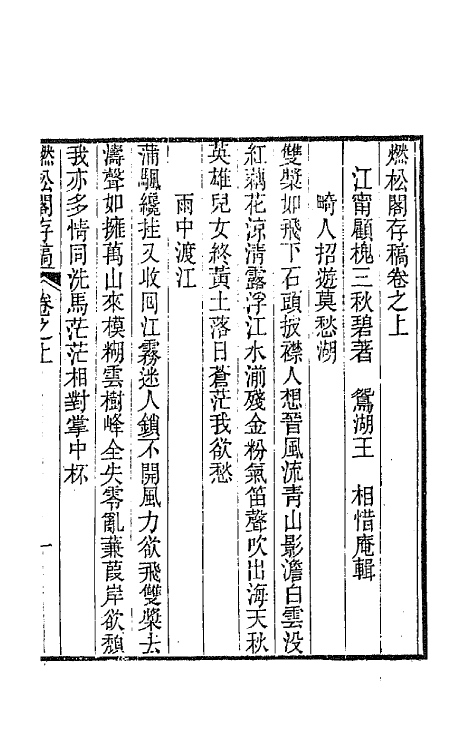 燃松閣存稿卷之上
江甯顧槐三秋碧著　鴛湖王　相惜庵輯
畸人招遊莫愁湖
雙槳如飛下石頭披襟人想晉風流青山影澹白雲沒
紅藕花涼清露浮江水湔殘金粉氣笛聲吹出海天秋
英雄兒女終黃土落日蒼茫我欲愁
雨中渡江
蒲颿纔挂又收回江霧迷人鎖不開風力欲飛雙槳去
濤聲如擁萬山來模糊雲樹峰全失零亂蒹葭岸欲頹
我亦多情同洗馬茫茫相對掌中杯
燃松閣存稿　卷之上　一